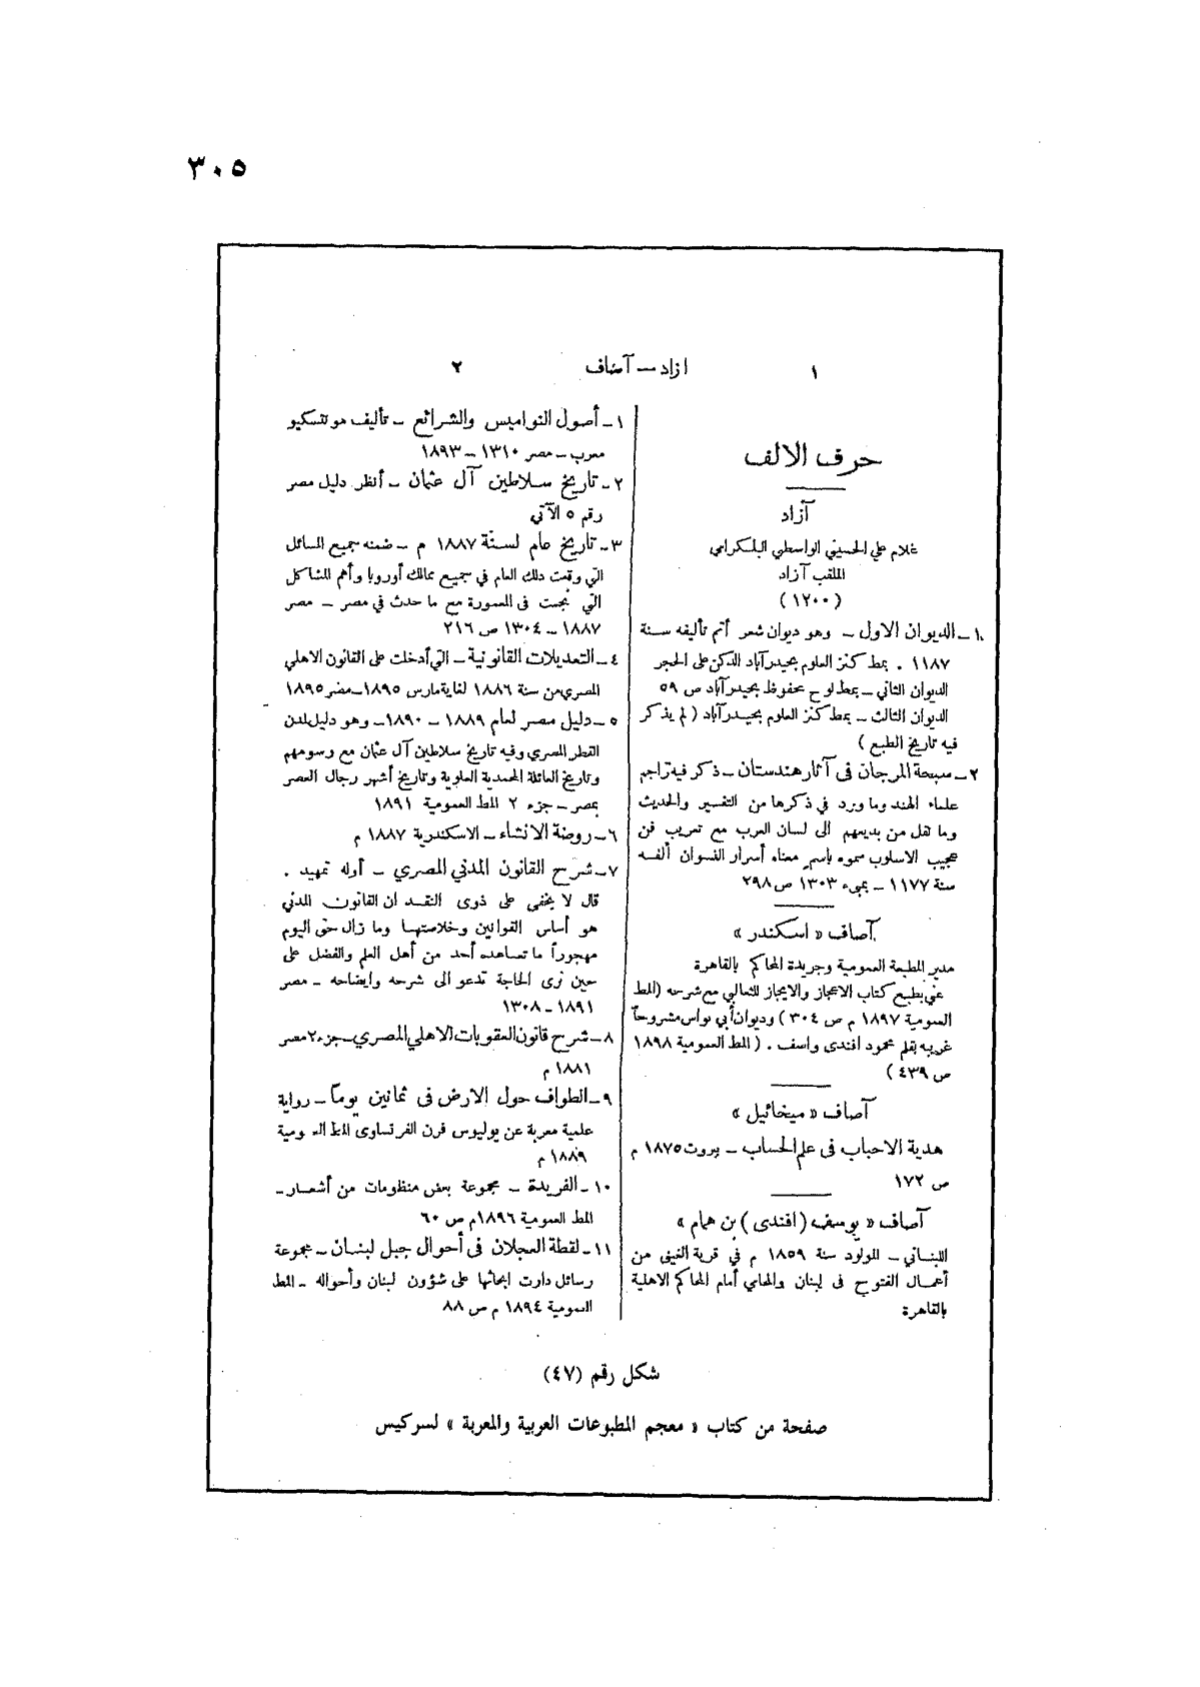 ٣٠٥
١
ازاد — آصاف
٢
حرف الالف
آزاد
غلام علي الحسيني الواسطي البلكرامي
الملقب آزاد
(١٢٠٠)
١ـ الديوان الاول ـ وهو ديوان شعر أتم تأليفه سنة
١١٨٧ . بمط كنز العلوم بحيدرآباد الدكن على الحجر
الديوان الثاني ـ بمط لوح محفوظ بحيدرآباد ص ٥٩
الديوان الثالث ـ بمط كنز العلوم بحيدرآباد ( لم يذكر
فيه تاريخ الطبع )
٢ـ سبحة المرجان فى آثار هندستان ـ ذكر فيه تراجم
علماء الهند وما ورد في ذكرها من التفسير والحديث
وما نقل من بديعهم الى لسان العرب مع تعريب فن
عجيب الاسلوب سموه باسم معناه أسرار النسوان ألفه
سنة ١١٧٧ ـ بمبىء ١٣٠٣ ص ٢٩٨
آصاف « اسكندر »
مدير المطبعة العمومية وجريدة المحاكم بالقاهرة
عني بطبع كتاب الاعجاز والايجاز للثعالبي مع شرحه (المط
العمومية ١٨٩٧ م ص ٣٠٤ ) وديوان أبي نواس مشروحاً
غريبه بقلم محمود افندى واصف . ( المط العمومية ١٨٩٨
ص ٤٣٩ )
آصاف « ميخائيل »
هدية الاحباب فى علم الحساب ـ بيروت ١٨٧٥ م
ص ١٧٢
آصاف « يوسف ( افندى ) بن همام »
اللبناني ـ المولود سنة ١٨٥٩ م في قرية من
أعمال الفتوح فى لبنان والمحامي أمام المحاكم الاهلية
بالقاهرة
١ـ أصول النواميس والشرائع ـ تأليف مونتسكيو
معرب ـ مصر ١٣١٠ ـ ١٨٩٣
٢ـ تاريخ سلاطين آل عثمان ـ أنظر دليل مصر
رقم ٥ الآتي
٣ـ تاريخ عام لسنة ١٨٨٧ م ـ ضمنه جميع المسائل
التي وقعت ذلك العام في جميع ممالك أوروبا وأهم المشاكل
التي نجمت فى المعمورة مع ما حدث في مصر ـ مصر
١٨٨٧ ـ ١٣٠٤ ص ٢١٦
٤ـ التعديلات القانونية ـ التي أدخلت على القانون الاهلي
المصري من سنة ١٨٨٦ لغاية مارس ١٨٩٥ ـ مصر ١٨٩٥
٥ـ دليل مصر لعام ١٨٨٩ ـ ١٨٩٠ ـ وهو دليل لمدن
القطر المصري وفيه تاريخ سلاطين آل عثمان مع رسومهم
وتاريخ العائلة المحمدية العلوية وتاريخ أشهر رجال العصر
بمصر ـ جزء ٢ المط العمومية ١٨٩١
٦ـ روضة الانشاء ـ الاسكندرية ١٨٨٧ م
٧ـ شرح القانون المدني المصري ـ أوله تمهيد .
قال لا يخفى على ذوى النقد ان القانون المدني
هو أساس القوانين وخلاصتها وما زال حتى اليوم
مهجوراً ما تصاهده أحد من أهل العلم والفضل على
حين نرى الحاجة تدعو الى شرحه وايضاحه ـ مصر
١٨٩١ ـ ١٣٠٨
٨ـ شرح قانون العقوبات الاهلي المصري ـ جزء ٢ مصر
١٨٨١ م
٩ـ الطواف حول الارض فى ثمانين يوماً ـ رواية
علمية معربة عن يوليوس فرن الفرنساوى المط العمومية
١٨٨٩ م
١٠ـ الفريدة ـ مجموعة بعض منظومات من أشعار ـ
المط العمومية ١٨٩٦م ص ٦٠
١١ـ لقطة العجلان فى أحوال جبل لبنان ـ مجموعة
رسائل دارت ابحاثها على شؤون لبنان وأحواله ـ المط
العمومية ١٨٩٤ م ص ٨٨
شكل رقم (٤٧)
صفحة من كتاب « معجم المطبوعات العربية والمعربة » لسركيس